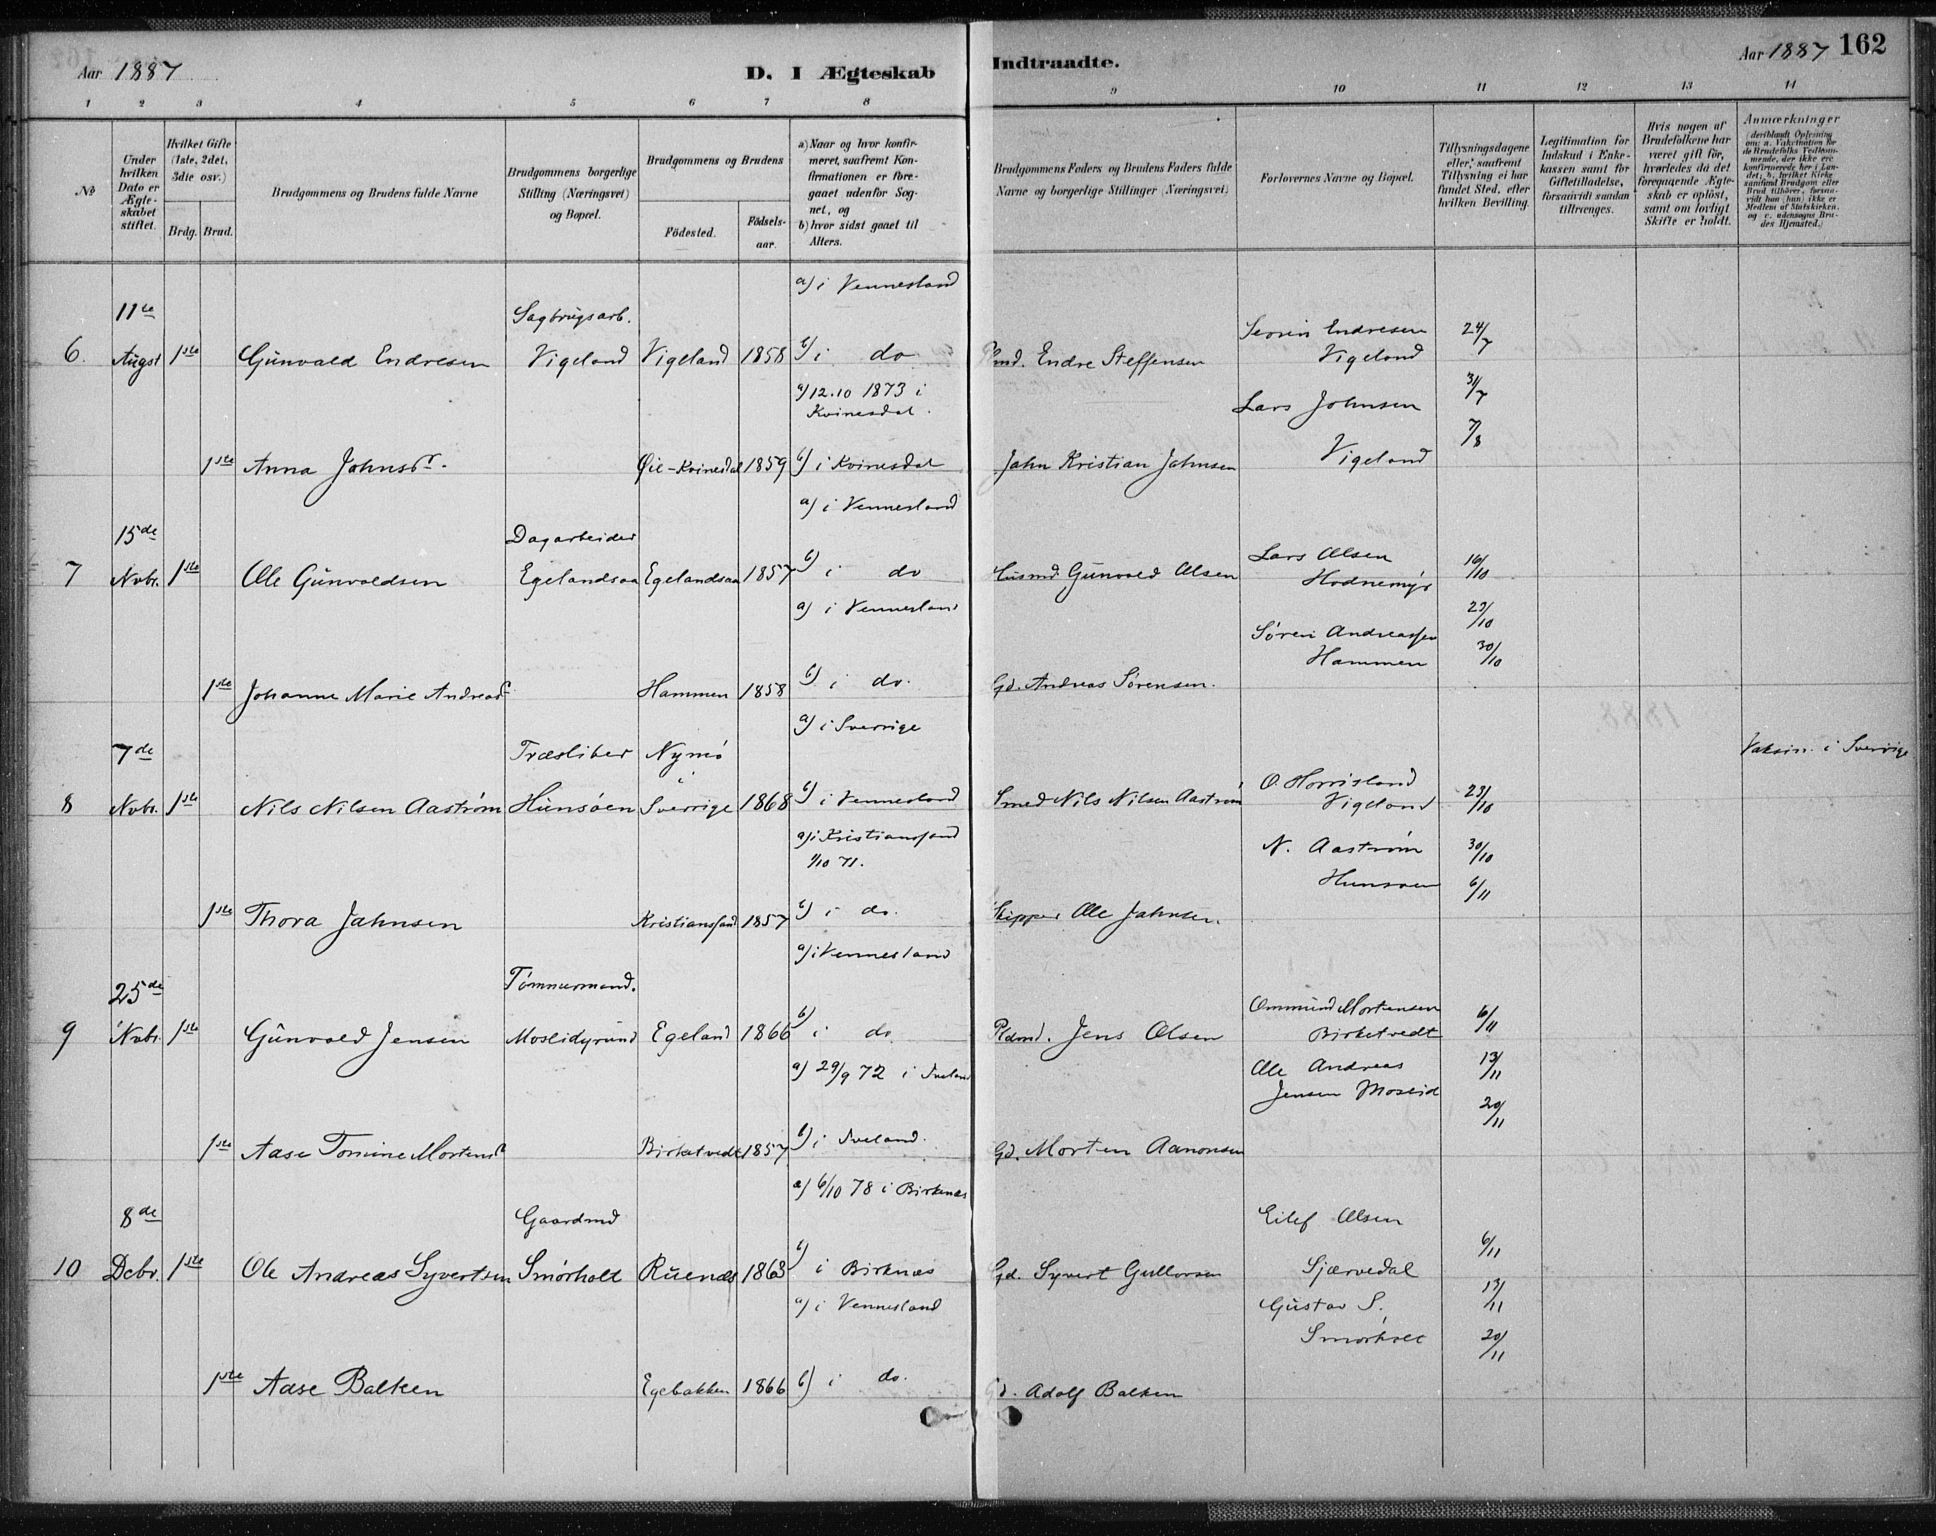 Aar 1887
D. I Ægteskab Indtraadte.
Aar 1887 162
1 2 3 4 5 6 7 8 9 10 11 12 13 14
No
Under hvilken Dato er Ægteskabet stiftet.
Hvilket Gifte (1ste, 2det, 3die osv.)
Brdg. Brud.
Brudgommens og Brudens fulde Navne
Brudgommens borgerlige Stilling (Næringsvei) og Bopæl.
Brudgommens og Brudens
Fødested. Fødselsaar.
a) Naar og hvor konfirmeret, saafremt Konfirmationen er foregaaet udenfor Sognet, og
b) hvor sidst gaaet til Alters.
Brudgommens Faders og Brudens Faders fulde Navne og borgerlige Stillinger (Næringsvei)
Forlovernes Navne og Bopæl.
Tillysningsdagene eller, saafremt Tillysning ei har fundet Sted, efter hvilken Bevilling.
Legitimation for Indskud i Enkekassen samt for Giftetilladelse, forsaavidt saadan tiltrænges.
Hvis nogen af Brudefolkene har været gift før, hvorledes da det foregaaende Ægteskab er opløst, samt om lovligt Skifte er holdt.
Anmærkninger
(deriblandt Oplysning om: a. Vakcination for de Brudefolks Vedkommende, der ikke ere konfirmerede her i Landet, b. hvilket Kirkesamfund Brudgom eller Brud tilhører, forsaavidt han (hun) ikke er Medlem af Statskirken, og c. udensogns Brudes Hjemsted.)
a) i Vennesland
11te Sagbrugsarb. Sevrin Endresen 24/7
6. Augst 1ste Gunvald Endresen Vigeland Vigeland 1858 b) i do Endre Steffensen Vigeland
a) 12.10 1873 i Kvinesdal. Lars Johnsen 31/7
7/8
1ste Anna Johnsdr. Øie-Kvinesdal 1859 b) i Kvinesdal John Kristian Johnsen Vigeland
a) i Vennesland
15de Dagarbeider Lars Olsen 16/10
7 Nvbr. 1ste Ole Gunvaldsen Egelandsaa Egelandsaa 1857 b) i do Husmd. Gunvald Olsen Hodnemyr
a) i Vennesland 23/10
Søren Andreassen
Hammen 30/10
1ste Johanne Marie Andreasd Hammen 1858 b) i do. Gd. Andreas Sørensen.
a) i Sverrige
7de Træsliber Nymö Vaksin. i Sverrige
i O. Horrisland
8 Nvbr. 1ste Nils Nilsen Aastrøm Hunsøen Sverrige 1868 b) i Vennesland Smed Nils Nilsen Aastrøm Vigeland 23/10
a) i Kristianssand 1/10 71. N. Aastrøm 30/10
Hunsøen 6/11
1ste Thora Jahnsen Kristianssand 1857 b) i do. Skipper Ole Jahnsen.
a) i Vennesland
25de Tømmermand. Ommund Mortensen 6/11
9 Nvbr. 1ste Gunvald Jensen Moslidgrund Egeland 1866 b) i do Pldmd. Jens Olsen Birketvedt
a) 29/9 72 i Iveland Ole Andreas 13/11
Jensen Moseid 20/11
1ste Aase Tomine Mortensd Birketvedt 1857 b) i Iveland. Gd. Morten Aanonsen
a) 6/10 78 i Birknæs
8de Gaardmd Eilef Olsen 6/11
10 Dcbr. 1ste Ole Andreas Syvertsen Smørholt Ruenæs 1863 b) i Birknæs Gd. Syvert Gullovsen Sjærvedal
a) i Vennesland Gustav S. 13/11
Smørholt 20/11
1ste Aase Balken Egebakken 1866 b) i do. Gd. Adolf Balken